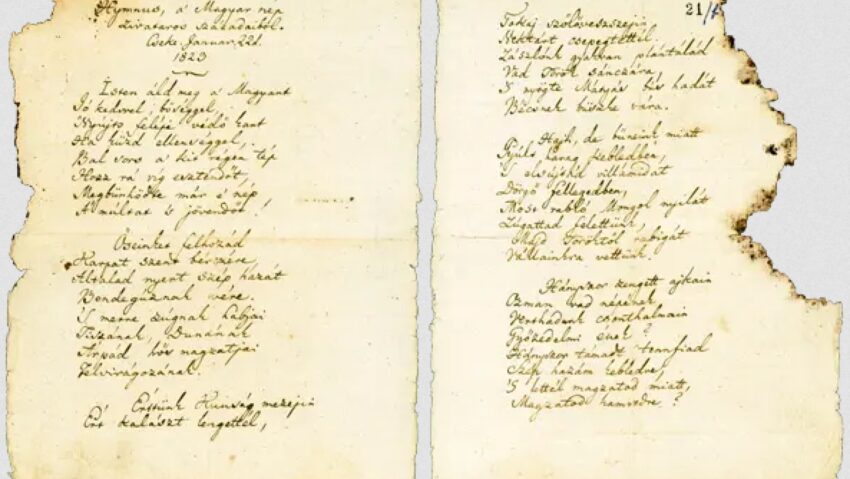 Hymnus, a' Magyar nép
zivataros századaiból.
Cseke. Januar. 22d.
1823
Isten áldd meg a' Magyart
Jó kedvvel, bőséggel,
Nyújts feléje védő kart
Ha küzd ellenséggel,
Bal sors a' kit régen tép
Hozz rá víg esztendőt,
Megbűnhödte már e' nép
A' múltat 's jövendőt!
Őseinket felhozád
Kárpát szent bérczére,
Általad nyert szép hazát
Bendegúznak vére.
'S merre zúgnak habjai
Tiszának, Dunának
Árpád hős magzatjai
Felvirágozának.
Értünk Kunság mezejin
Ért kalászt lengettél,
21/1
Tokaj szőlővesszejin
Nektárt csepegtettél.
Zászlónk gyakran plántálád
Vad Török sánczára,
'S nyögte Mátyás bús hadát
Bécsnek büszke vára.
Hajh, de bűneink miatt
Gyúlt harag kebledben,
'S elsújtád villámidat
Dörgő fellegedben,
Most rabló Mongol nyilát
Zúgattad felettünk,
Majd Töröktől rabigát
Vállainkra vettünk.
Hányszor zengett ajkain
Ozman vad népének
Vert hadunk csonthalmain
Győzedelmi ének?
Hányszor támadt tenfiad
Szép hazám kebledre,
'S lettél magzatod miatt,
Magzatod hamvvedre?